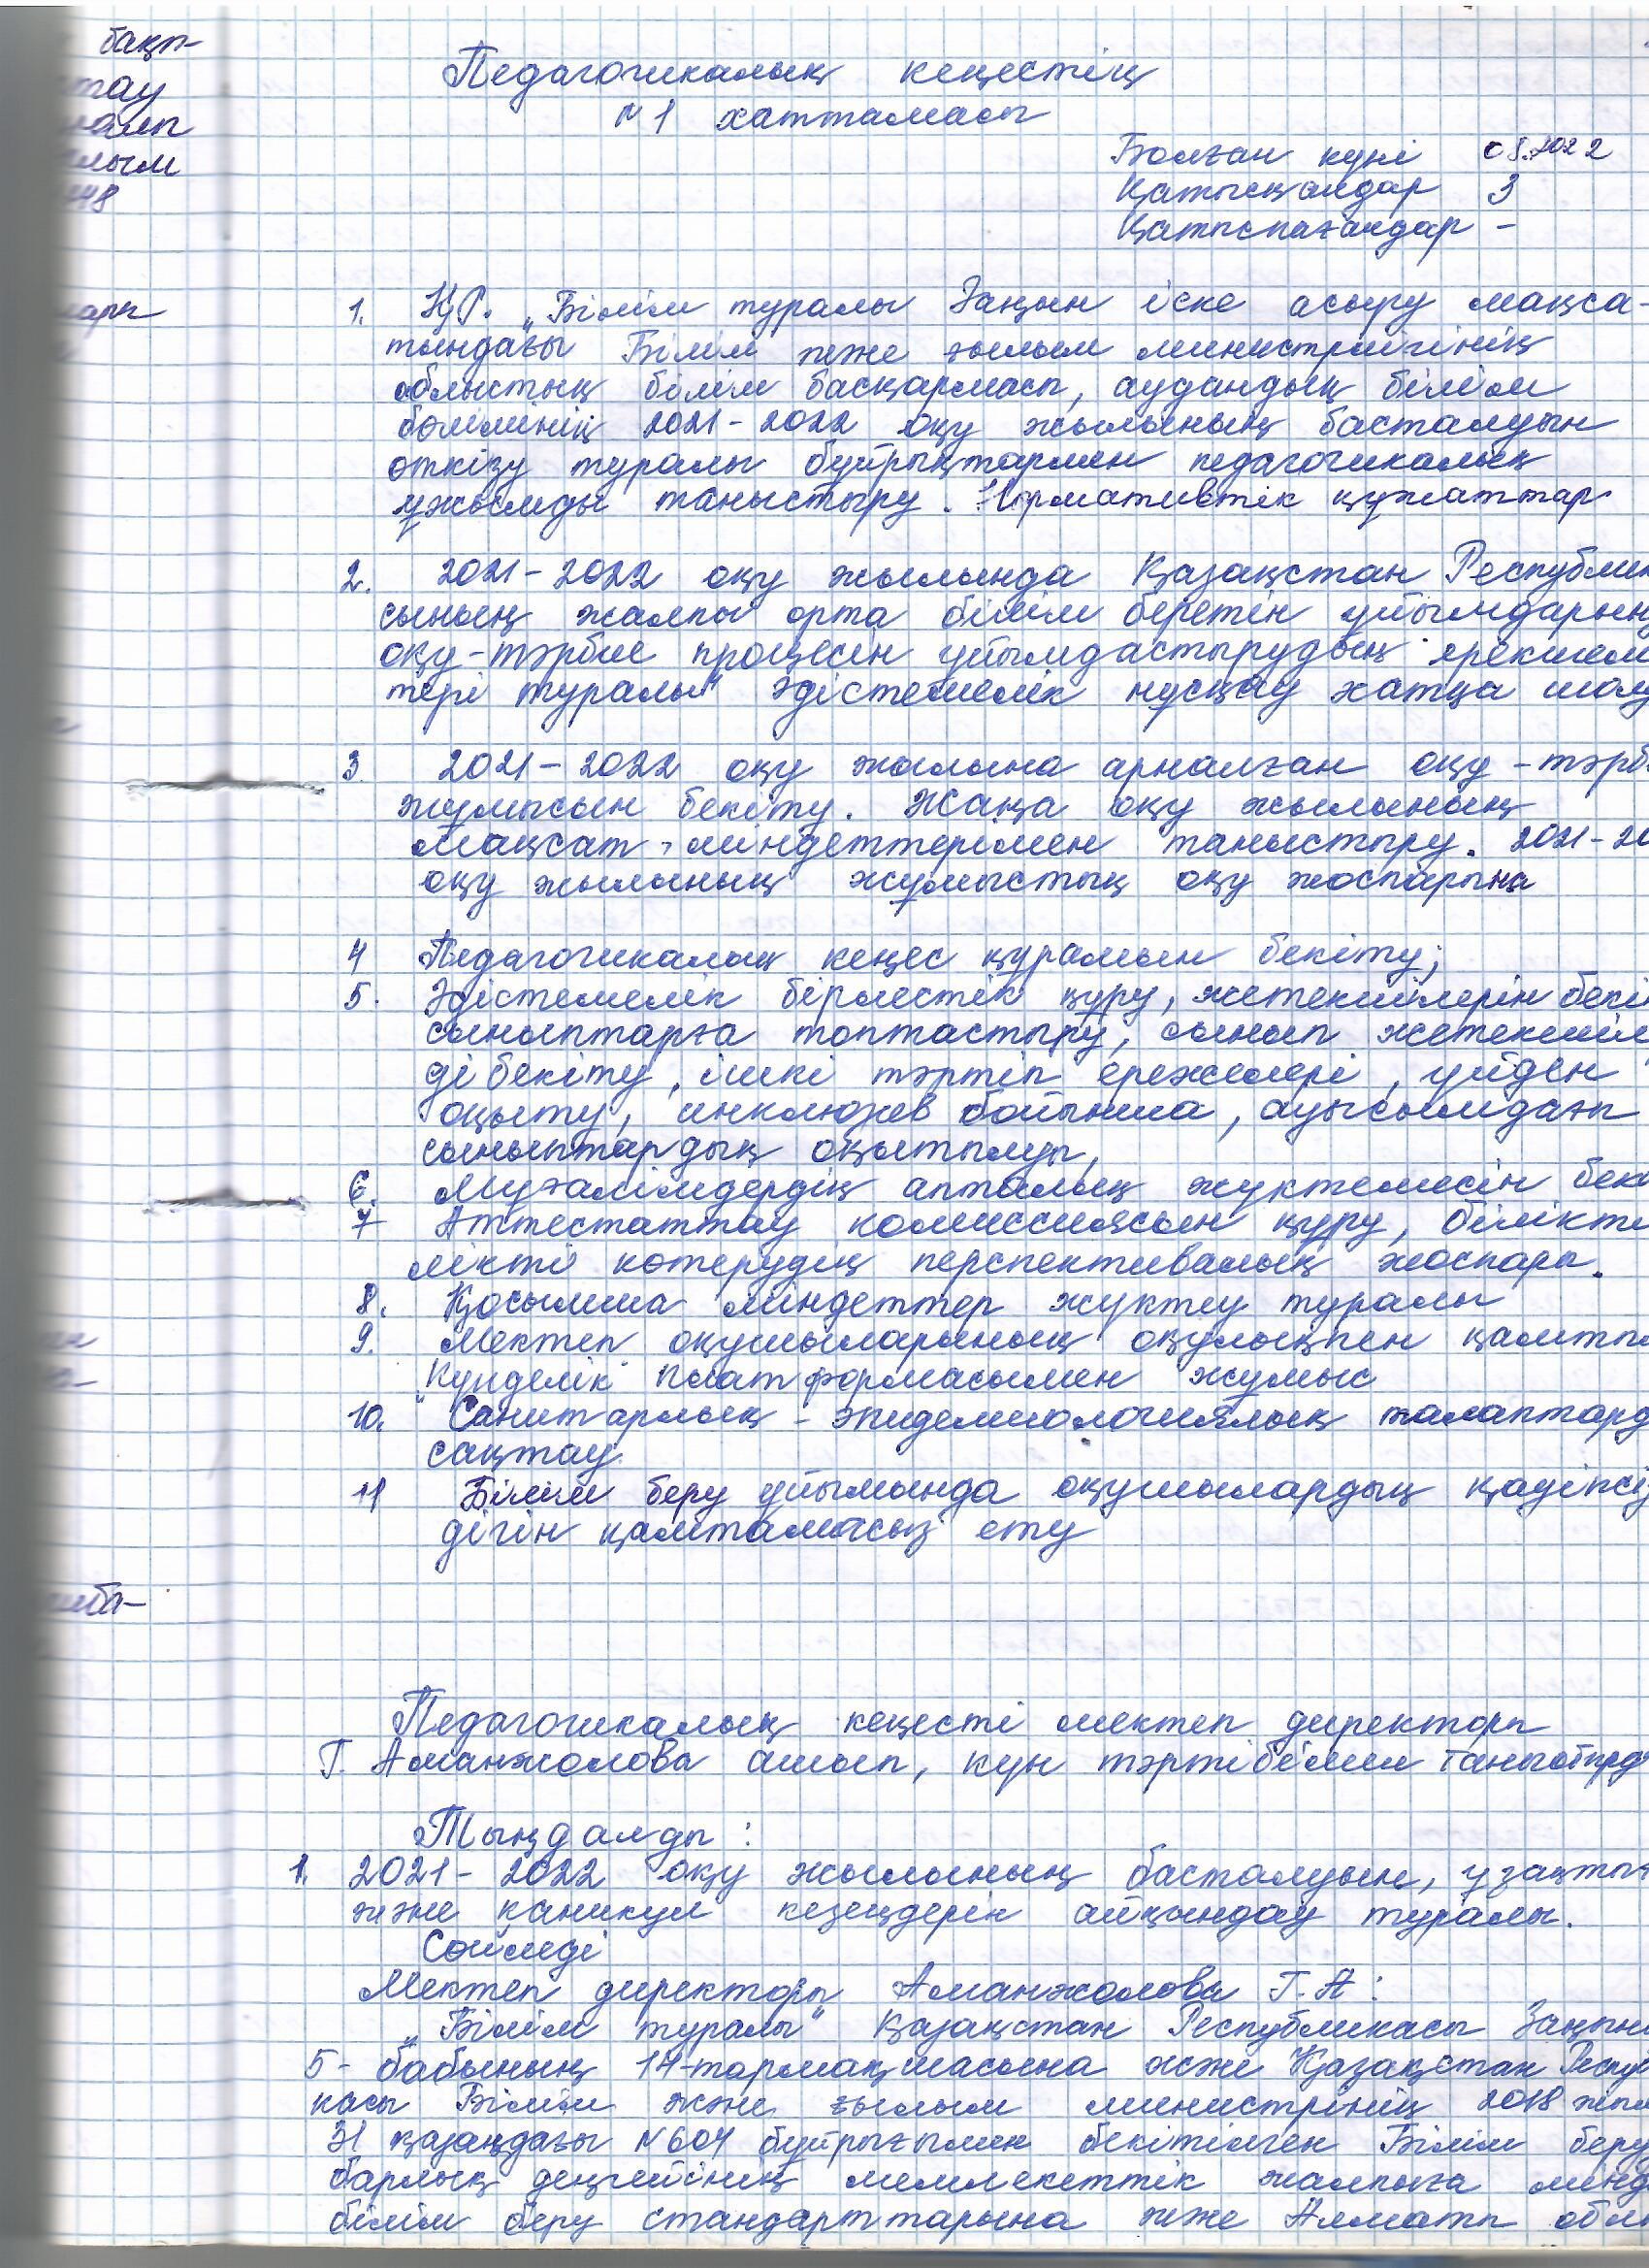 бақы-
тау
ламы
лым
48
Педагогикалық кеңестің
№1 хаттамасы
Болған күні 08.2022
Қатысқандар 3
Қатыспағандар -
лары
1. ҚР. „Білім туралы Заңын іске асыру мақса-
тындағы Білім және ғылым министрлігінің
облыстық білім басқармасы, аудандық білім
бөлімінің 2021-2022 оқу жылының басталуын
өткізу туралы бұйрықтармен педагогикалық
ұжымды таныстыру. Нормативтік құжаттар
2. 2021-2022 оқу жылында Қазақстан Республи
сының жалпы орта білім беретін ұйымдарын
оқу-тәрбие процесін ұйымдастырудың ерекшелі
тері туралы" әдістемелік нұсқау хатқа шолу
3. 2021-2022 оқу жылына арналған оқу-тәрб
жұмысын бекіту. Жаңа оқу жылының
Мақсат, міндеттерімен таныстыру. 2021-20
оқу жылының жұмыстық оқу жоспарына
4 Педагогикалық кеңес құрамын бекіту;
5. Әдістемелік бірлестік құру, жетекшілерін бекі
сыныптарға топтастыру, сынып жетекшіл
ді бекіту, ішкі тәртіп ережелері, үйден
оқыту, инклюзив бойынша, ауысымдағы
сыныптардың оқытылуы,
6. Мұғалімдердің апталық жүктемесін бекі
7 Аттестаттау комиссиясын құру, білікті
лікті көтерудің перспективалық жоспары.
8. Қосымша міндеттер жүктеу туралы
9. Мектеп оқушыларының оқулықпен қамты
"Күнделік" платформасымен жұмыс
10. Санитарлық - эпидемиологиялық талаптард
сақтау
11 Білім беру ұйымында оқушылардың қауіпсіз
дігін қамтамасыз ету
мба-
Педагогикалық кеңесті мектеп директоры
Г. Аманжолова ашып, күн тәртібімен таныстырд
Тыңдалды:
1. 2021- 2022 оқу жылының басталуын, ұзақты
және каникул кезеңдерін айқындау туралы.
Сөйледі
Мектеп директоры Аманжолова Г. А:
„Білім туралы" Қазақстан Республикасы Заңын
5- бабының 14-тармақшасына және Қазақстан Респуб
касы Білім және ғылым министрінің 2018 жыл
31 қазандағы №604 бұйрығымен бекітілген Білім беру
барлық деңгейінің мемлекеттік жалпыға мінд
білім беру стандарттарына және Алматы обл